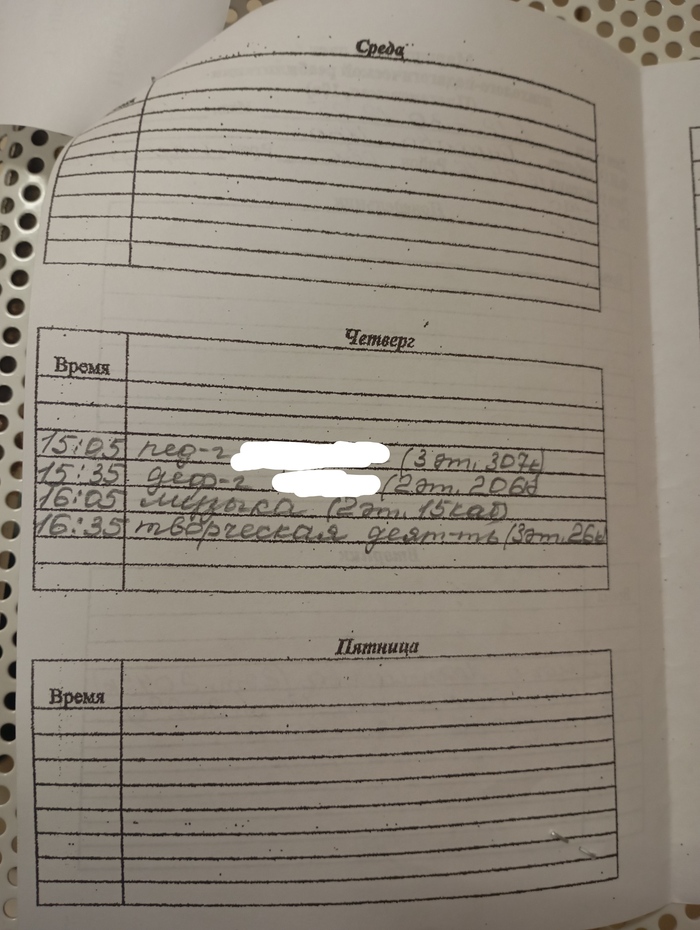 Среда
Четверг
Время
15:05 пед-г (3 эт, 307к)
15:35 деф-г (2эт, 206к)
16:05 музыка (2эт, 15каб)
16:35 творческая деят-ть (3эт.26к)
Пятница
Время